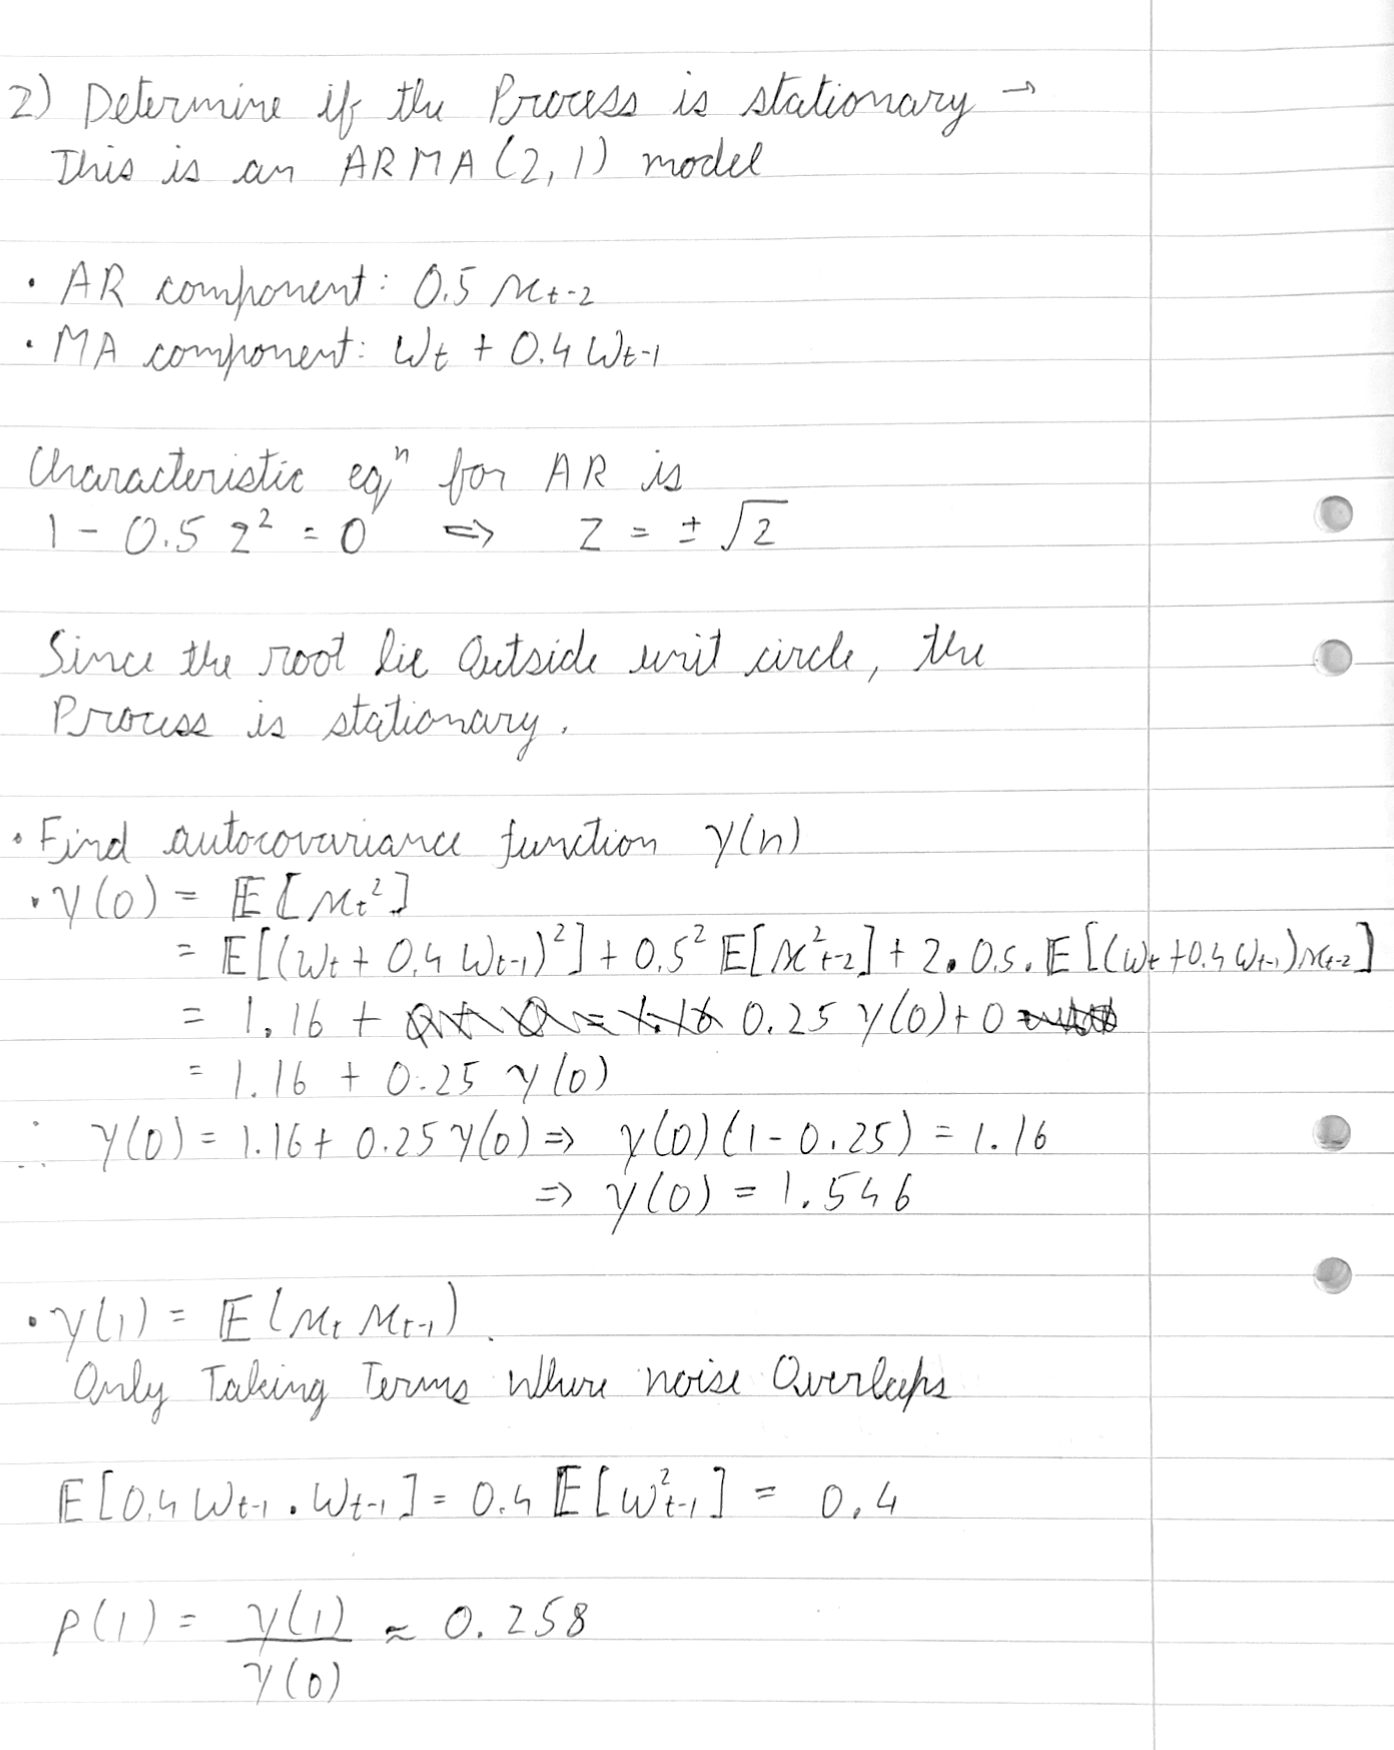 2) Determine if the Process is stationary →
This is an ARMA(2,1) model
• AR component: 0.5 x_{t-2}
• MA component: W_t + 0.4 W_{t-1}
Characteristic eqⁿ for AR is
1 - 0.5 z² = 0 ⇔ z = ± √2
Since the root lie Outside unit circle, the
Process is stationary.
• Find autocovariance function γ(h)
• γ(0) = 𝔼[x_t²]
= 𝔼[(W_t + 0.4 W_{t-1})²] + 0.5² 𝔼[x²_{t-2}] + 2 • 0.5 . 𝔼[(W_t + 0.4 W_{t-1}) x_{t-2}]
= 1.16 + 0.25 γ(0) + 0
= 1.16 + 0.25 γ(0)
∴ γ(0) = 1.16 + 0.25 γ(0) ⇒ γ(0)(1 - 0.25) = 1.16
⇒ γ(0) = 1.546
• γ(1) = 𝔼(x_t x_{t-1}).
Only Taking Terms Where noise Overlaps
𝔼[0.4 W_{t-1} • W_{t-1}] = 0.4 𝔼[W²_{t-1}] = 0.4
ρ(1) = γ(1) / γ(0) ≈ 0.258